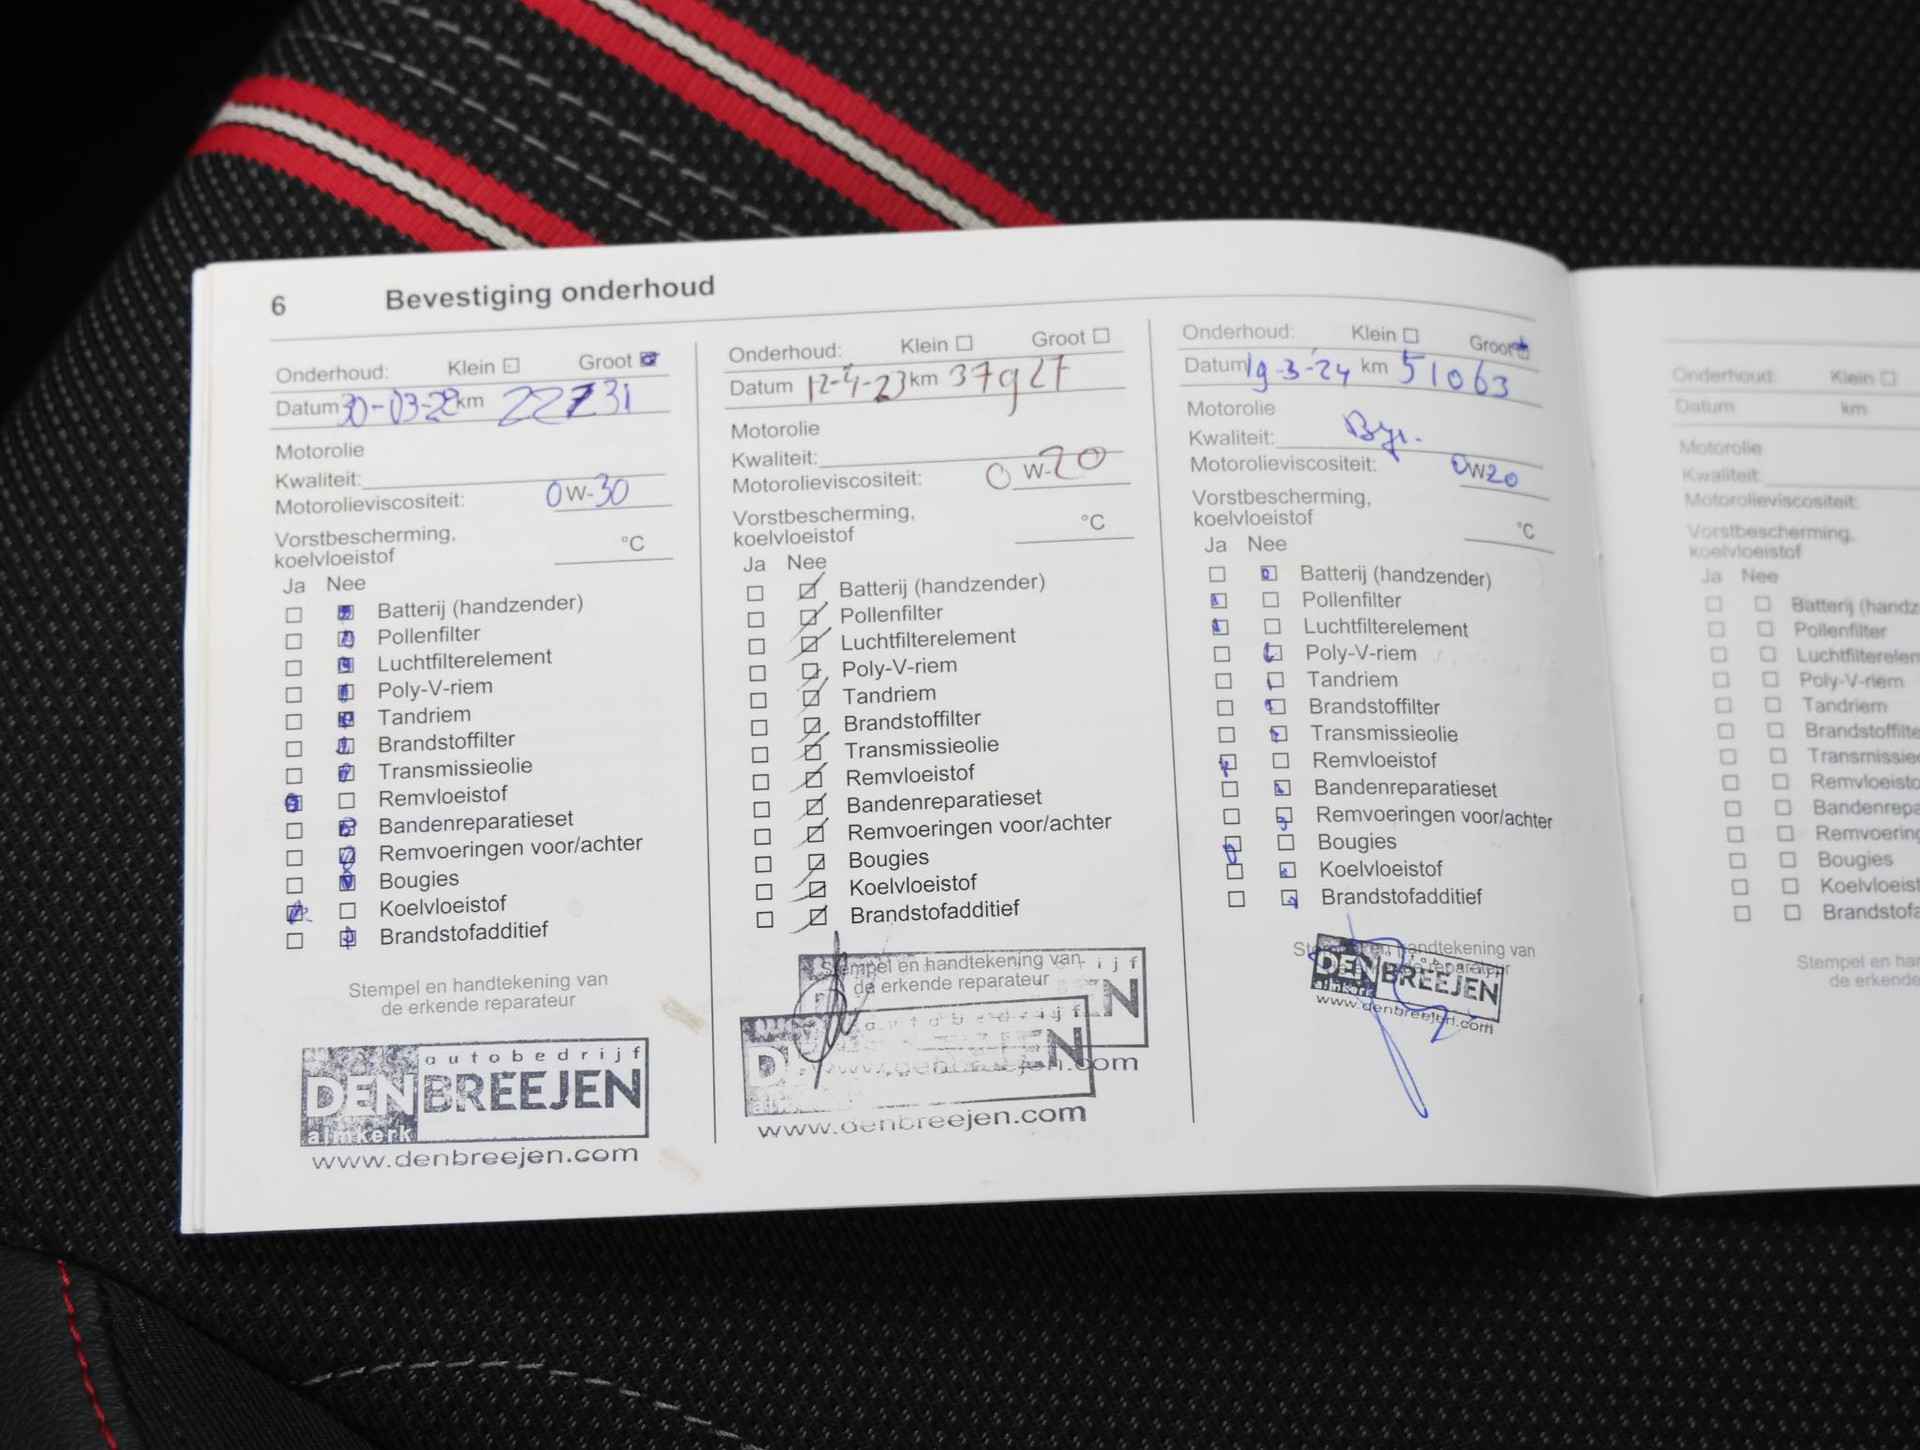 6 Bevestiging onderhoud
Onderhoud: Klein Groot
Datum 30-03-22 km 22731
Motorolie
Kwaliteit:
Motorolieviscositeit: 0 W-30
Vorstbescherming,
koelvloeistof °C
Ja Nee
Batterij (handzender)
Pollenfilter
Luchtfilterelement
Poly-V-riem
Tandriem
Brandstoffilter
Transmissieolie
Remvloeistof
Bandenreparatieset
Remvoeringen voor/achter
Bougies
Koelvloeistof
Brandstofadditief
Stempel en handtekening van
de erkende reparateur
autobedrijf
DEN BREEJEN
almkerk
www.denbreejen.com
Onderhoud: Klein Groot
Datum 12-4-23 km
Motorolie
Kwaliteit:
Motorolieviscositeit: 0 W-20
Vorstbescherming,
koelvloeistof °C
Ja Nee
Batterij (handzender)
Pollenfilter
Luchtfilterelement
Poly-V-riem
Tandriem
Brandstoffilter
Transmissieolie
Remvloeistof
Bandenreparatieset
Remvoeringen voor/achter
Bougies
Koelvloeistof
Brandstofadditief
Stempel en handtekening van
de erkende reparateur
autobedrijf
www.denbreejen.com
Onderhoud: Klein Groot
Datum 19-3-'24 km 51063
Motorolie
Kwaliteit:
Motorolieviscositeit: 0W20
Vorstbescherming,
koelvloeistof °C
Ja Nee
Batterij (handzender)
Pollenfilter
Luchtfilterelement
Poly-V-riem
Tandriem
Brandstoffilter
Transmissieolie
Remvloeistof
Bandenreparatieset
Remvoeringen voor/achter
Bougies
Koelvloeistof
Brandstofadditief
Stempel en handtekening van
DEN BREEJEN
almkerk
www.denbreejen.com
Onderhoud: Klein
Datum km
Motorolie
Kwaliteit:
Motorolieviscositeit:
Vorstbescherming,
koelvloeistof
Ja Nee
Batterij (handz
Pollenfilter
Luchtfilterelem
Poly-V-riem
Tandriem
Brandstoffilte
Transmissie
Remvloeisto
Bandenrepa
Remvoering
Bougies
Koelvloeist
Brandstofa
Stempel en han
de erkende